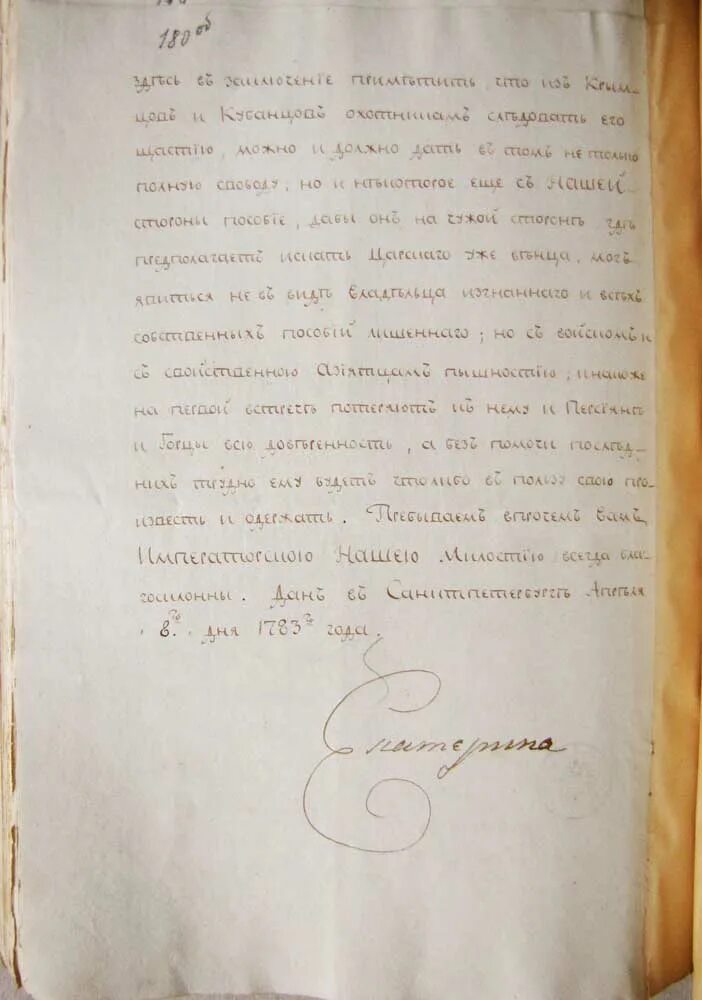 180 об
здѣсь въ заключеніе примѣтить, что изъ Крым-
цовъ и Кубанцовъ охотникамъ слѣдовать его
щастію, можно и должно дать въ томъ не только
полную свободу; но и нѣкоторое еще съ Нашей
стороны пособіе, дабы онъ на чужой сторонѣ гдѣ
предполагаетъ искать Царскаго уже вѣнца, могъ
явиться не въ видѣ Владѣльца изгнаннаго и всѣхъ
собственныхъ пособій лишеннаго; но съ войскомъ и
съ свойственною Азіятцамъ пышностію; инакоже
на первой встречѣ потеряютъ къ нему и Персіянѣ
и Горцы всю довѣренность, а безъ помочи послѣд-
нихъ трудно ему будетъ чтолибо въ пользу свою про-
известь и одержать. Пребываемъ впрочемъ вамъ
Императорскою Нашею Милостію всегда бла-
госклонны. Данъ въ Санктпетербургѣ Апрѣля
8.го дня 1783го года.
Екатерина